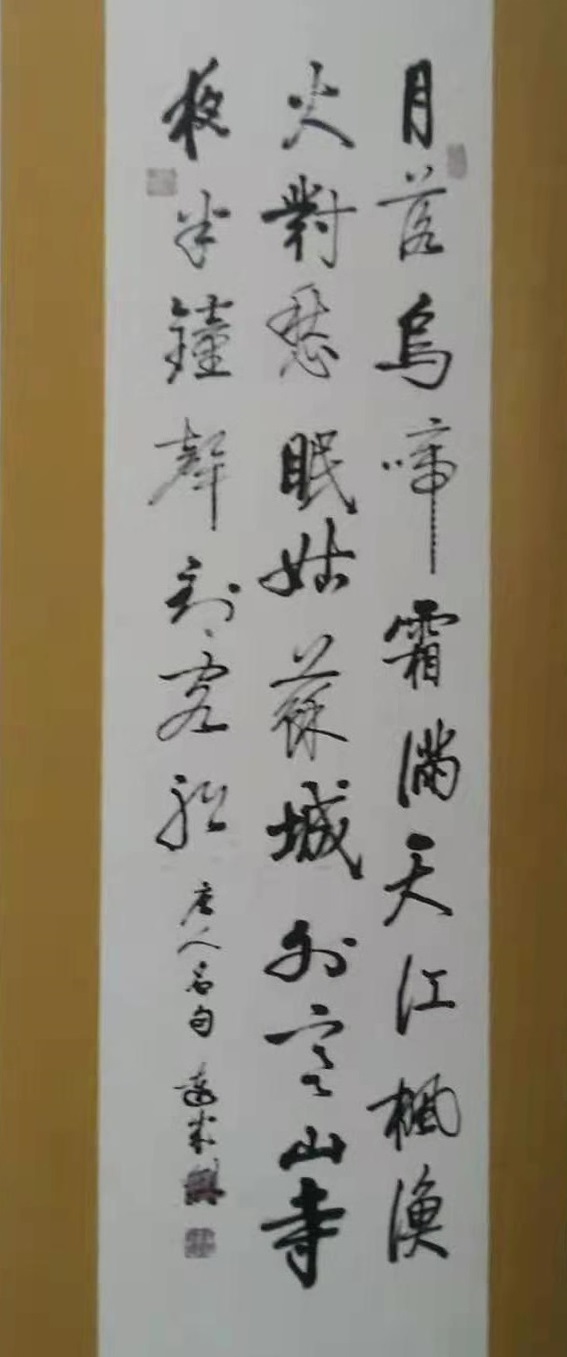 月落烏啼霜滿天江楓漁
火對愁眠姑蘇城外寒山寺
夜半鐘聲到客船
唐人名句